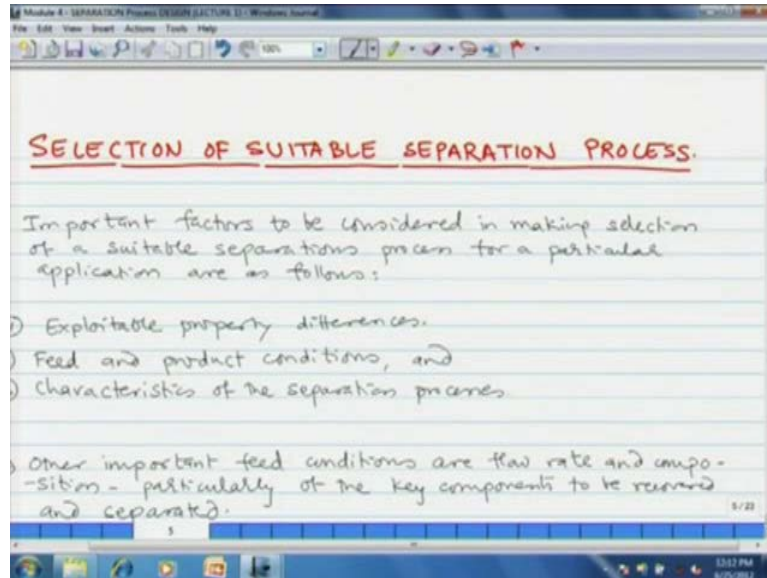 Module 4 - SEPARATION Process DESIGN (LECTURE 1) - Windows Journal
File Edit View Insert Actions Tools Help
100%
SELECTION OF SUITABLE SEPARATION PROCESS.
Important factors to be considered in making selection
of a suitable separations process for a particular
application are as follows:
) Exploitable property differences.
) Feed and product conditions, and
) Characteristics of the separation processes
) Other important feed conditions are flow rate and compo-
-sition - particularly of the key components to be recovered
and separated.
5/23
5
12:12 PM
6/25/2012